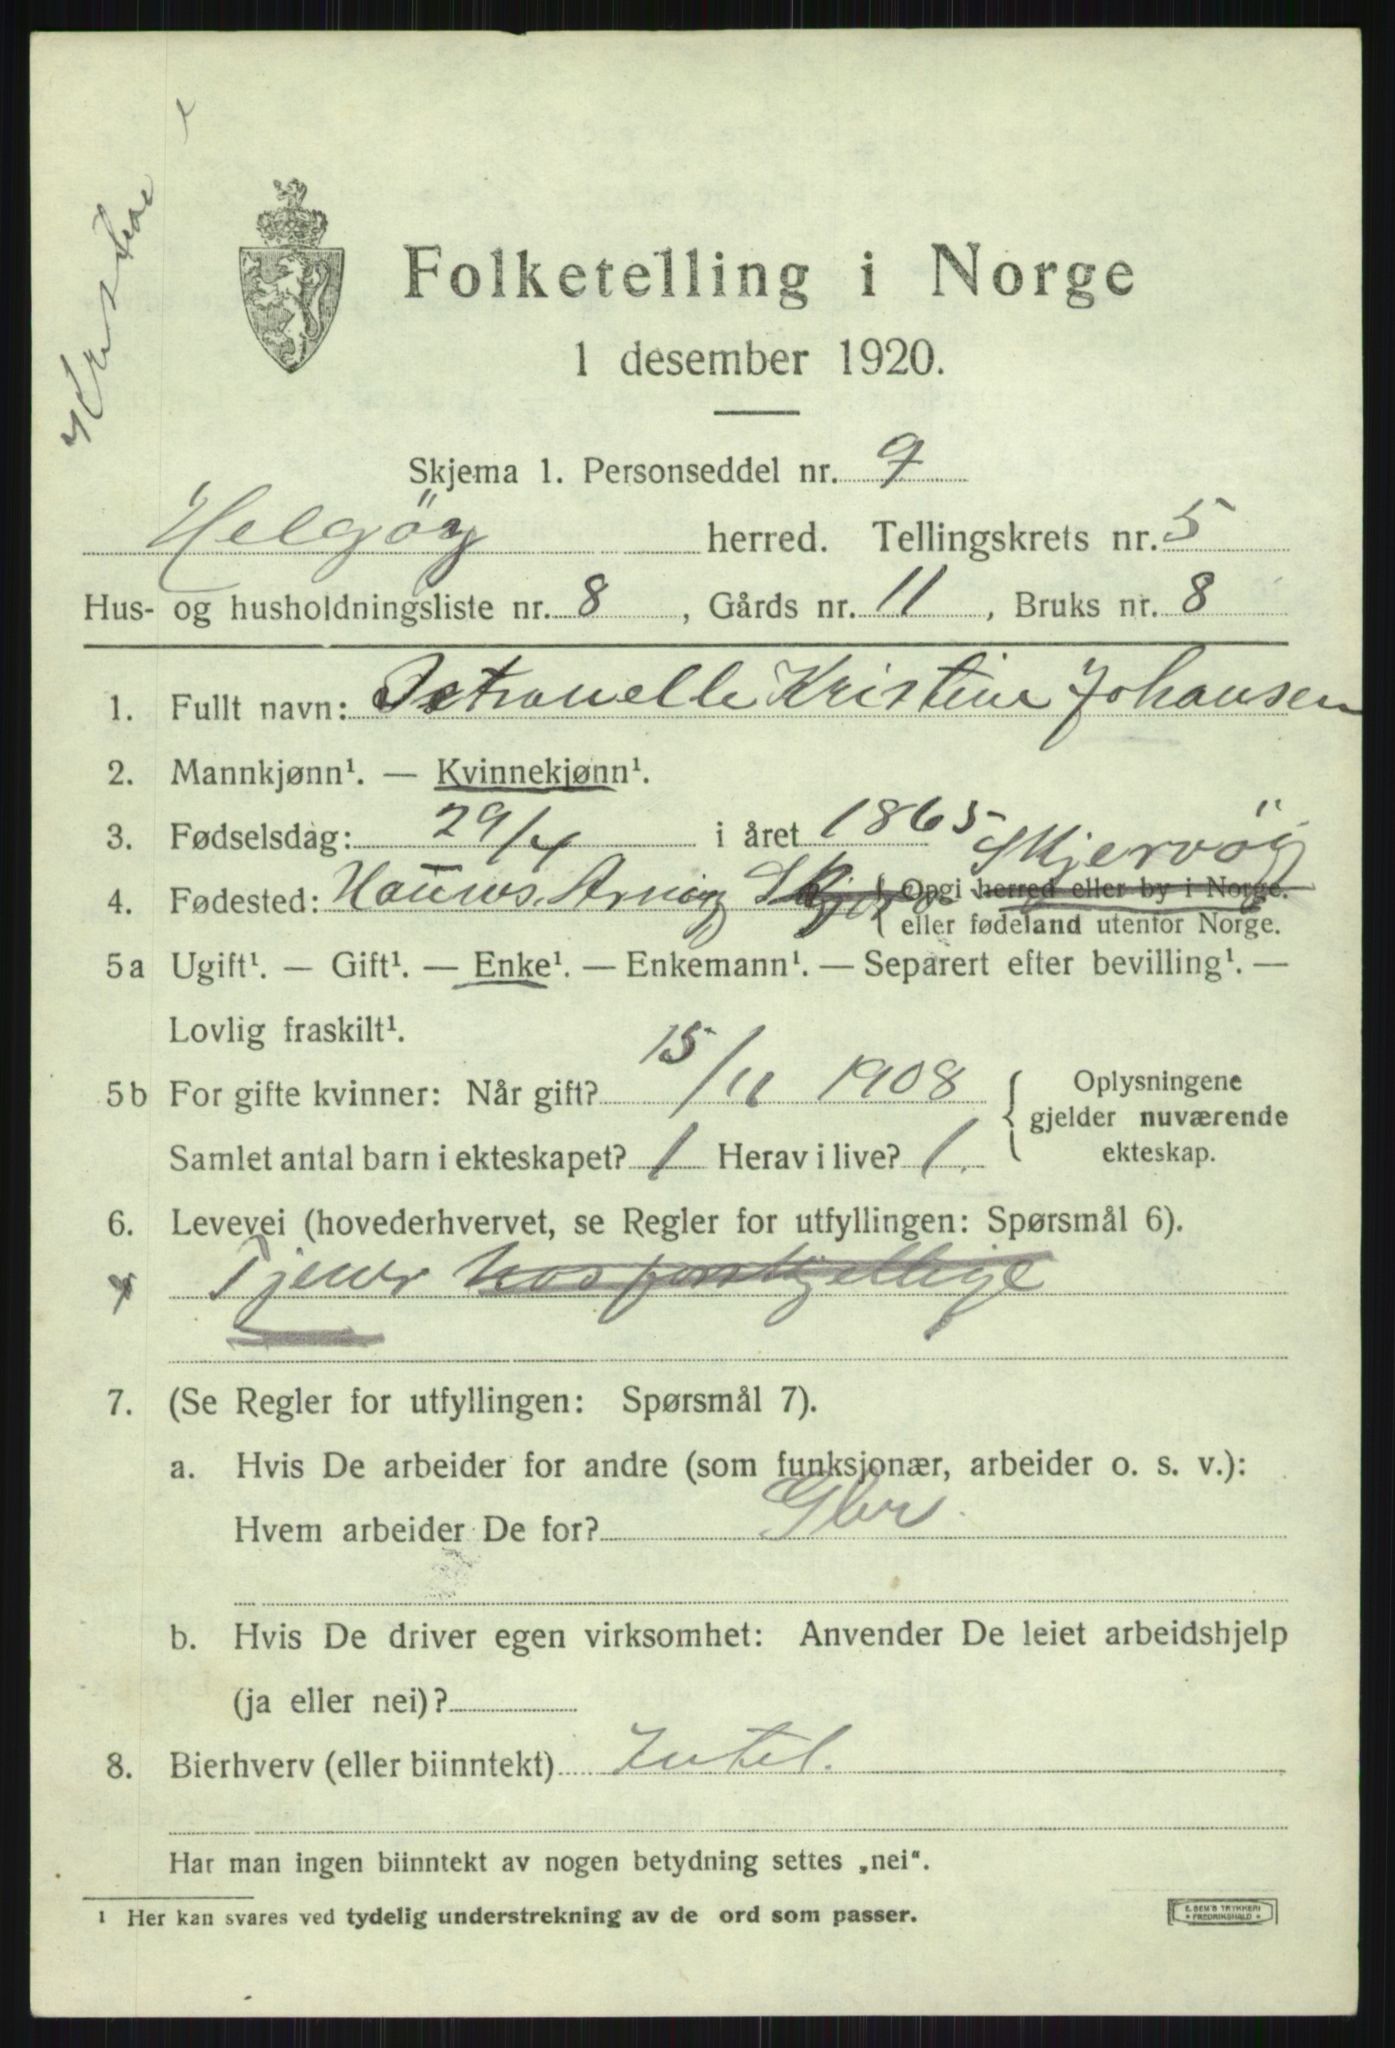 Folketelling i Norge
1 desember 1920.
Skjema 1. Personseddel nr. 9
Helgöy herred. Tellingskrets nr. 5
Hus- og husholdningsliste nr. 8, Gårds nr. 11, Bruks nr. 8
1. Fullt navn: Petronelle Kristine Johansen
2. Mannkjønn¹. — Kvinnekjønn¹.
3. Fødselsdag: 29/4 i året 1865
Skjervöy
4. Fødested: Arnöy { Opgi herred eller by i Norge.
eller fødeland utenfor Norge.
5a Ugift¹. — Gift¹. — Enke¹. — Enkemann¹. — Separert efter bevilling¹. —
Lovlig fraskilt¹.
5b For gifte kvinner: Når gift? 15/11 1908
Samlet antal barn i ekteskapet? 1 Herav i live? 1.
{ Oplysningene
gjelder nuværende
ekteskap.
6. Levevei (hovederhvervet, se Regler for utfyllingen: Spørsmål 6).
Tjener hos forskjellige
7. (Se Regler for utfyllingen: Spørsmål 7).
a. Hvis De arbeider for andre (som funksjonær, arbeider o. s. v.):
Hvem arbeider De for? Gbr.
b. Hvis De driver egen virksomhet: Anvender De leiet arbeidshjelp
(ja eller nei)?
8. Bierhverv (eller biinntekt)
Har man ingen biinntekt av nogen betydning settes „nei“.
¹ Her kan svares ved tydelig understrekning av de ord som passer.
E. SEM'S TRYKKERI
* FREDRIKSHALD *